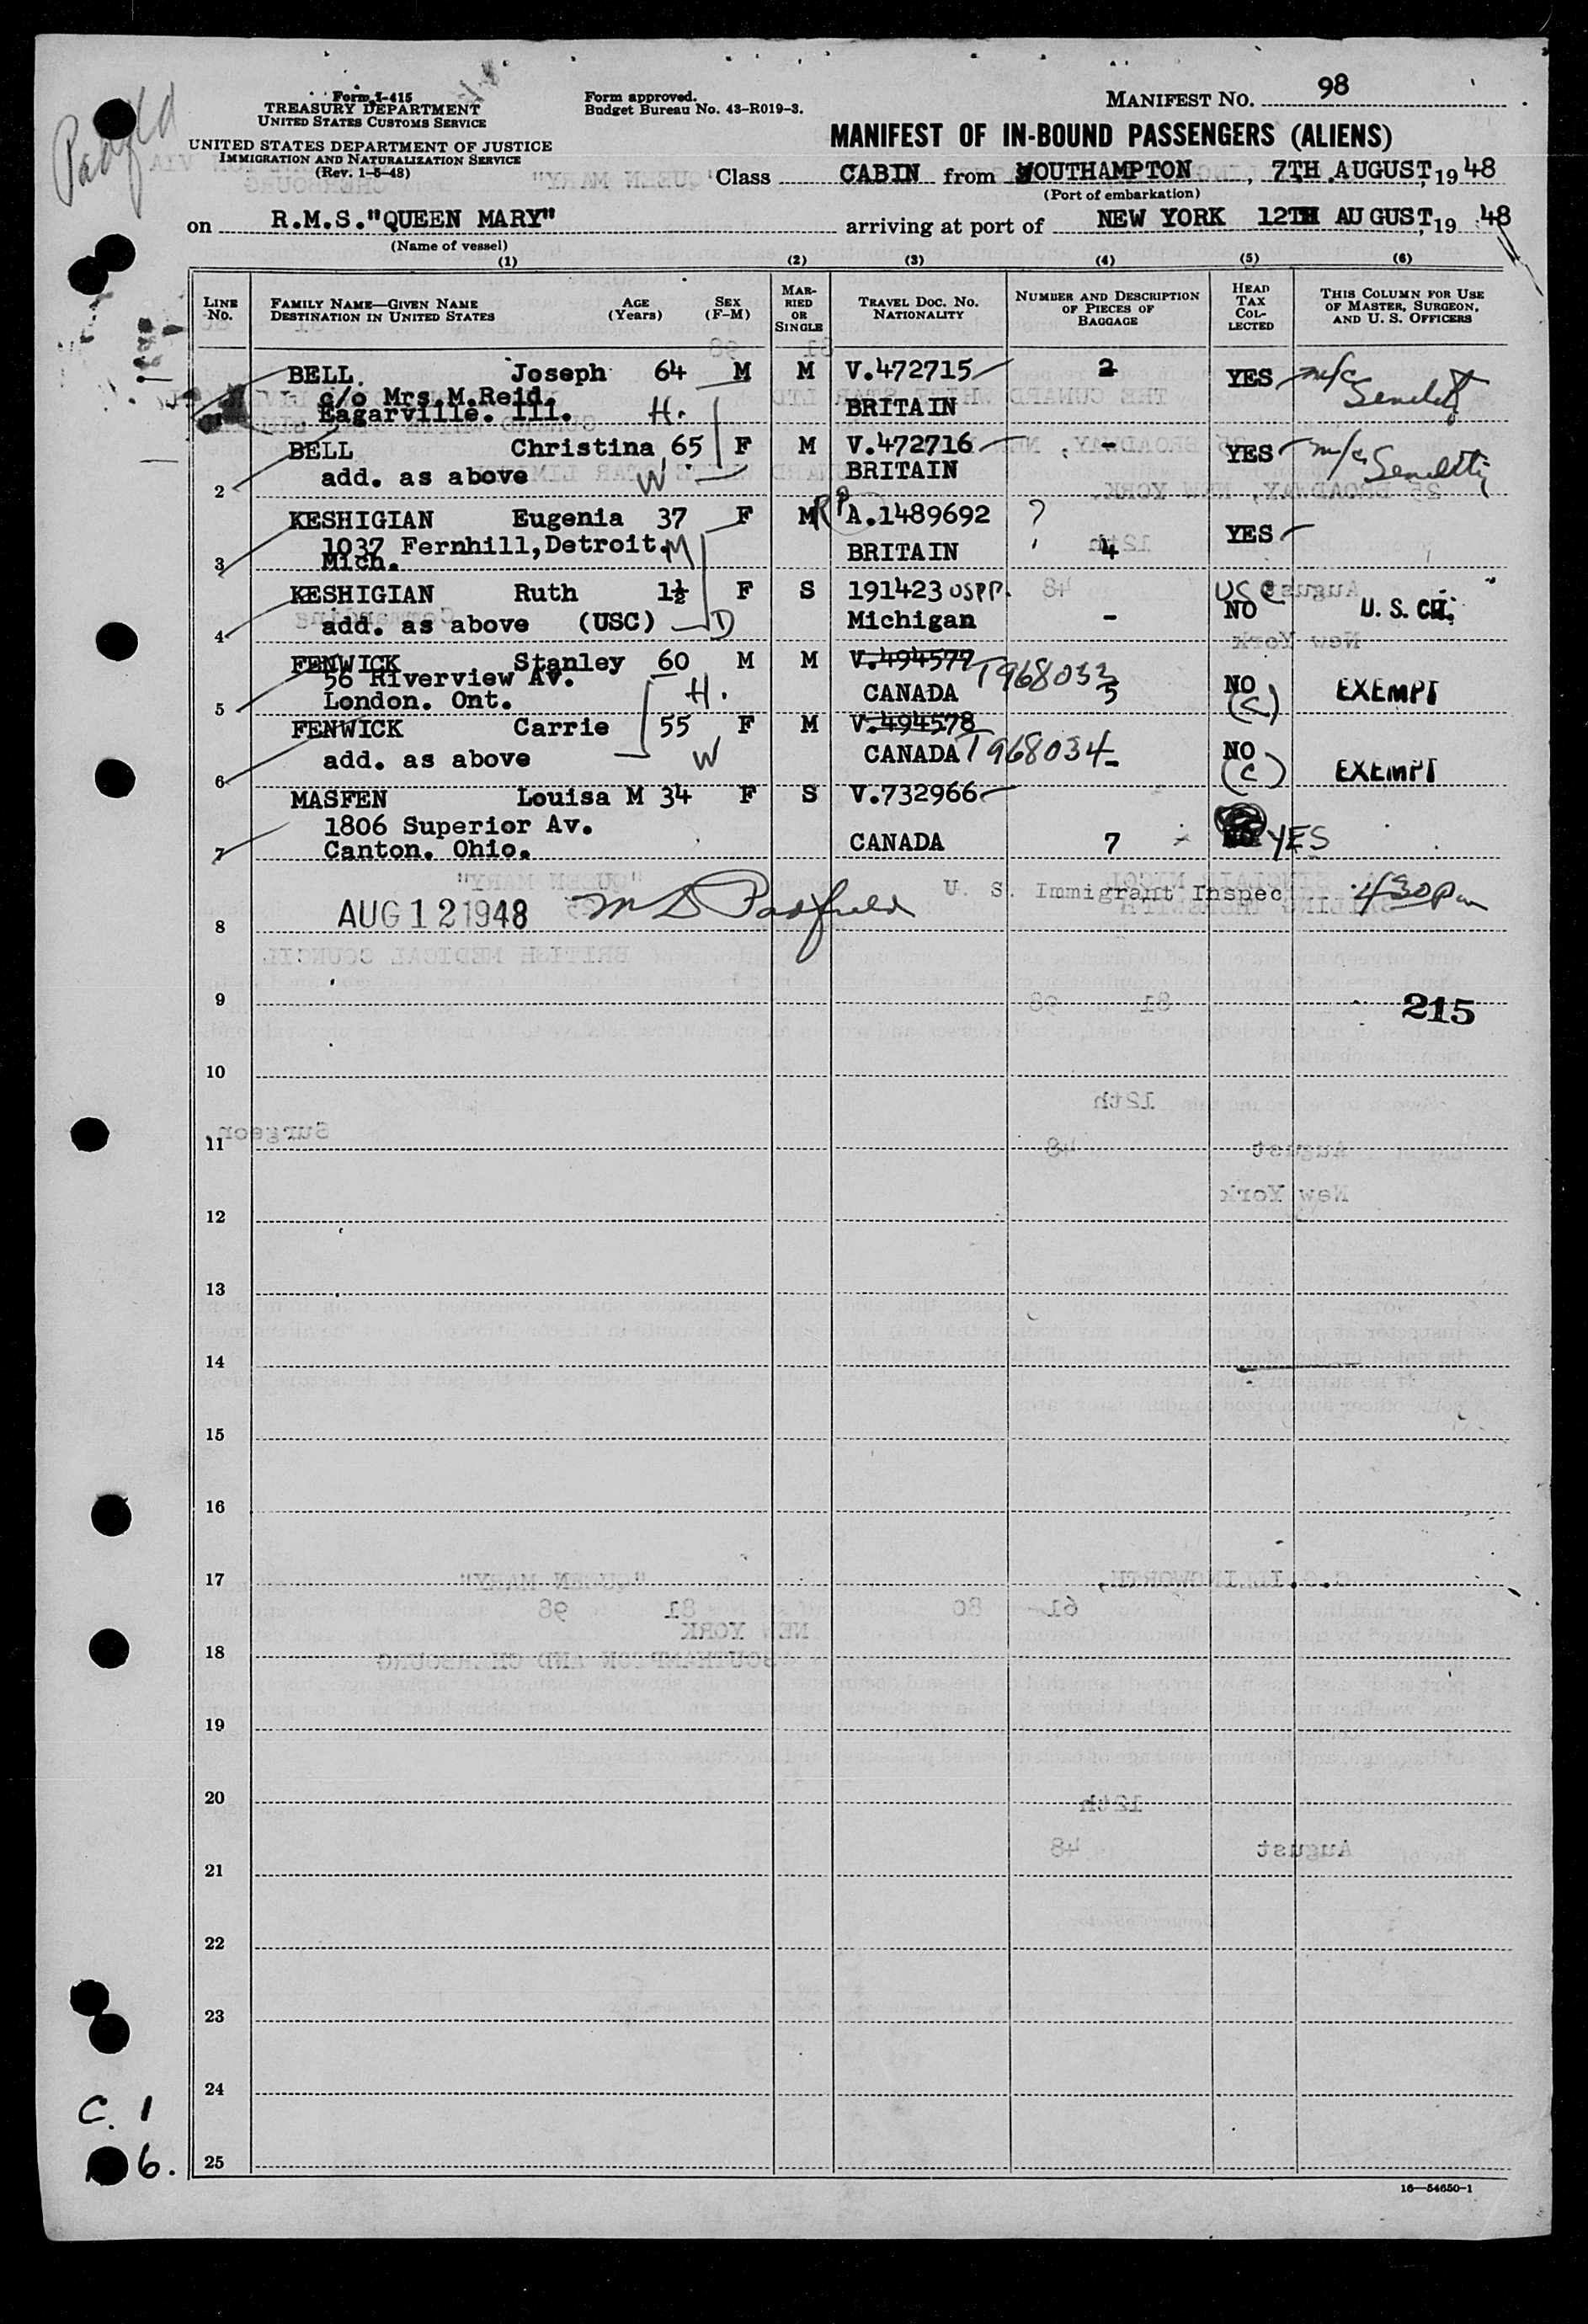 Padfield
Form I-415
TREASURY DEPARTMENT
UNITED STATES CUSTOMS SERVICE
UNITED STATES DEPARTMENT OF JUSTICE
IMMIGRATION AND NATURALIZATION SERVICE
(Rev. 1-5-48)
Form approved.
Budget Bureau No. 43-R019-3.
MANIFEST NO. 98
MANIFEST OF IN-BOUND PASSENGERS (ALIENS)
Class CABIN from SOUTHAMPTON, 7TH AUGUST, 1948
(Port of embarkation)
on R.M.S."QUEEN MARY" arriving at port of NEW YORK 12TH AUGUST, 1948
(Name of vessel)
(1) (2) (3) (4) (5) (6)
LINE No. FAMILY NAME—GIVEN NAME DESTINATION IN UNITED STATES AGE (Years) SEX (F-M) MARRIED OR SINGLE TRAVEL DOC. NO. NATIONALITY NUMBER AND DESCRIPTION OF PIECES OF BAGGAGE HEAD TAX COLLECTED THIS COLUMN FOR USE OF MASTER, SURGEON, AND U. S. OFFICERS
BELL. Joseph 64 M M V.472715 2 YES m/c
c/o Mrs.M.Reid.
Eagarville. Ill. H. BRITAIN
BELL Christina 65 F M V.472716 - YES m/c
2 add. as above W BRITAIN
KESHIGIAN Eugenia 37 F M RP A.1489692 ? YES
1037 Fernhill,Detroit. M BRITAIN 4
3 Mich.
KESHIGIAN Ruth 1½ F S 191423 USPP. USC NO U. S. CIT.
4 add. as above (USC) D Michigan -
FENWICK Stanley 60 M M V.494577 T968033
56 Riverview Av. H. CANADA 5 NO EXEMPT
5 London. Ont. (C)
FENWICK Carrie 55 F M V.494578
6 add. as above W CANADA T968034 - NO (C) EXEMPT
MASFEN Louisa M 34 F S V.732966
1806 Superior Av.
7 Canton. Ohio. CANADA 7 YES
8 AUG 12 1948 M D Padfield U. S. Immigrant Inspec 430pm
9 215
10
11
12
13
14
15
16
17
18
19
20
21
22
23
24
C. 1
25
6.
16—54650-1